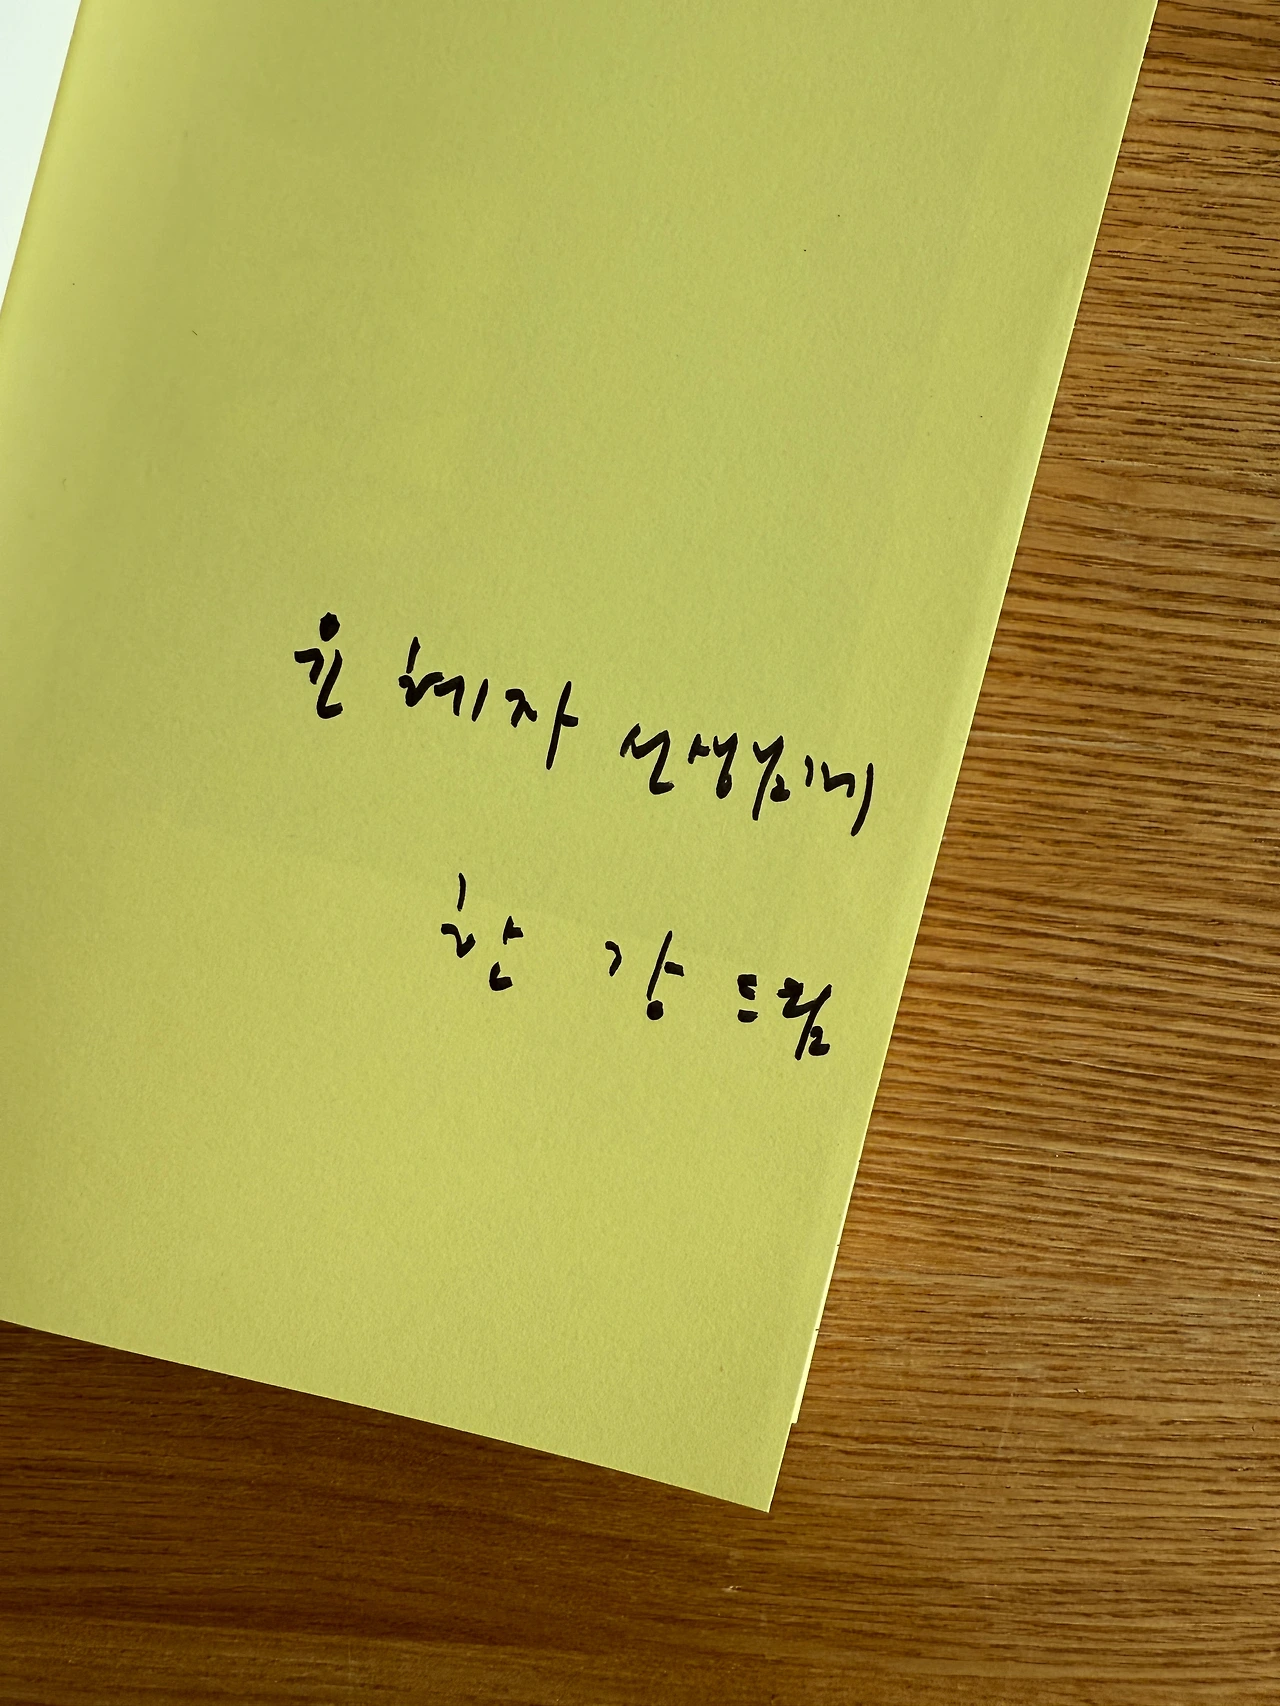 윤 혜자 선생님께
한 강 드림